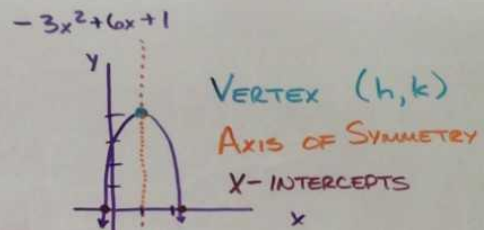 -3x²+6x+1
y
VERTEX (h,k)
AXIS OF SYMMETRY
X-INTERCEPTS
x